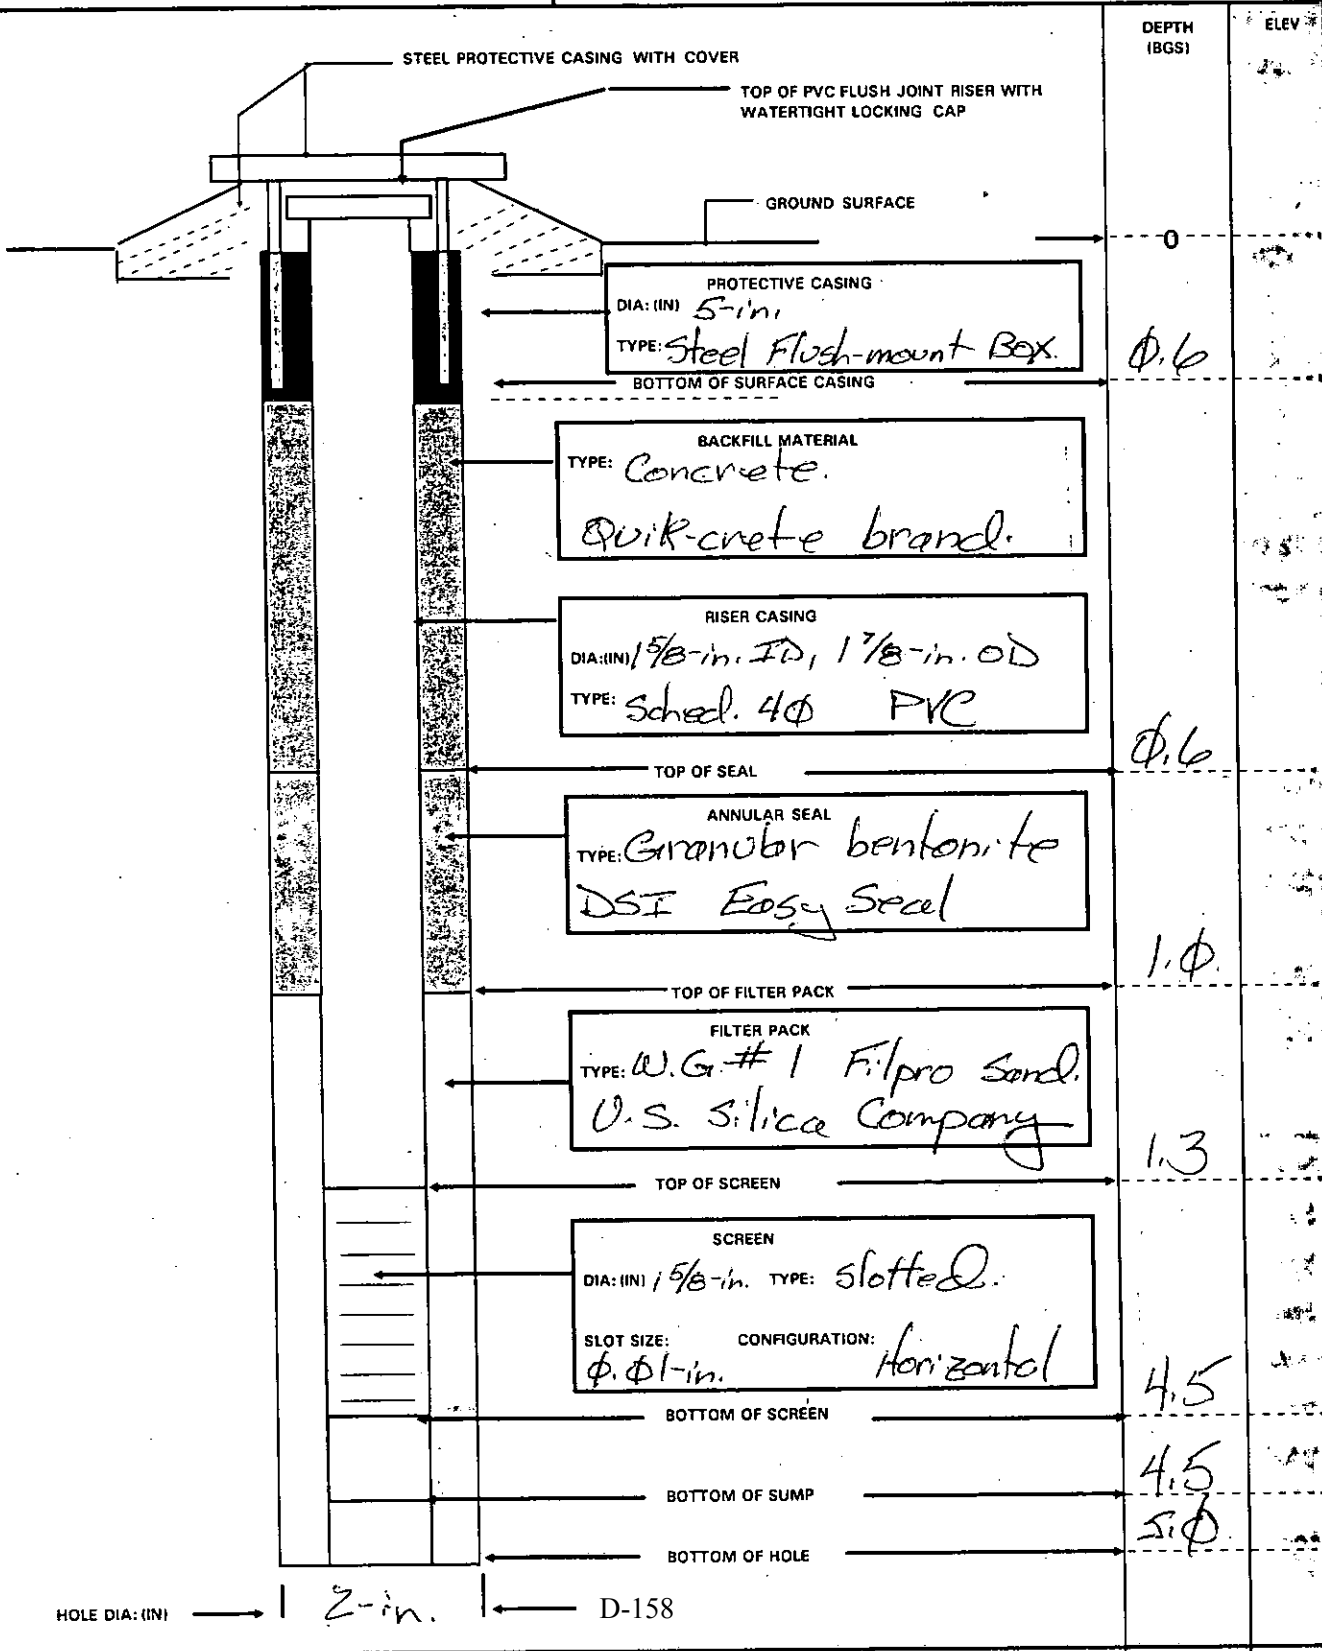 DEPTH
(BGS)
ELEV
STEEL PROTECTIVE CASING WITH COVER
TOP OF PVC FLUSH JOINT RISER WITH
WATERTIGHT LOCKING CAP
GROUND SURFACE
0
PROTECTIVE CASING
DIA: (IN) 5-in.
TYPE: Steel Flush-mount Box.
0.6
BOTTOM OF SURFACE CASING
BACKFILL MATERIAL
TYPE: Concrete.
Quik-crete brand.
RISER CASING
DIA:(IN) 1 5/8-in. ID, 1 7/8-in. OD
TYPE: Sched. 40 PVC
0.6
TOP OF SEAL
ANNULAR SEAL
TYPE: Granular bentonite
DSI Easy Seal
1.0
TOP OF FILTER PACK
FILTER PACK
TYPE: W.G. #1 Filpro Sand.
U.S. Silica Company
1.3
TOP OF SCREEN
SCREEN
DIA: (IN) 1 5/8-in. TYPE: Slotted.
SLOT SIZE: CONFIGURATION:
0.01-in. Horizontal
4.5
BOTTOM OF SCREEN
4.5
BOTTOM OF SUMP
5.0
BOTTOM OF HOLE
HOLE DIA: (IN) 2-in. D-158